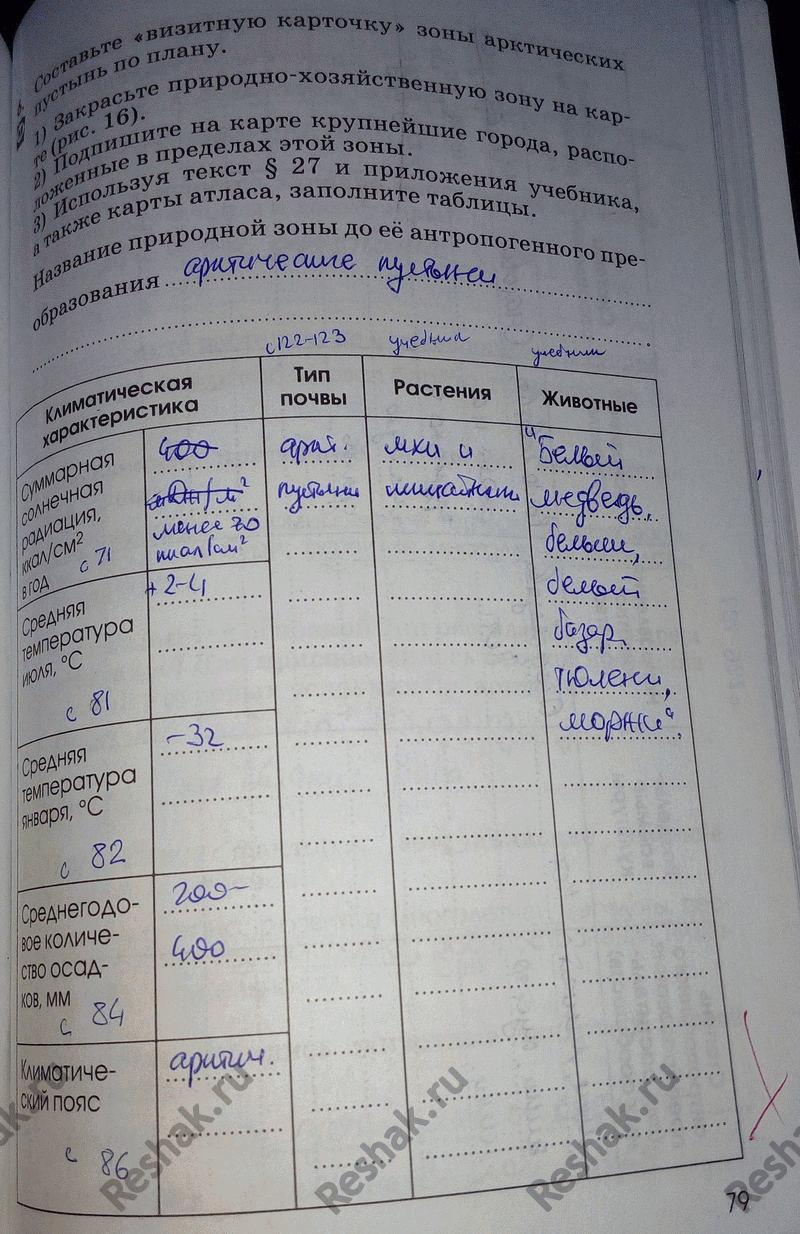 6. Составьте «визитную карточку» зоны арктических
пустынь по плану.
1) Закрасьте природно-хозяйственную зону на кар-
те (рис. 16).
2) Подпишите на карте крупнейшие города, распо-
ложенные в пределах этой зоны.
3) Используя текст § 27 и приложения учебника,
а также карты атласа, заполните таблицы.
Название природной зоны до её антропогенного пре-
образования арктические пустыни
с 122-123 учебника учебник
Климатическая характеристика Тип почвы Растения Животные
Суммарная солнечная радиация, ккал/см² в год с 71
400
менее 70
ккал/см²
аркт.
пустыни
мхи и
лишайники
"Белый
медведь,
белухи,
белый
тюлени,
моржи",
Средняя температура июля, °С с 81
+2-4
Средняя температура января, °С с 82
-32
Среднегодо-
вое количе-
ство осад-
ков, мм с 84
200-
400
Климатиче-
ский пояс с 86
арктич.
Reshak.ru
Reshak.ru
Reshak.ru
Reshak.ru
Reshak.ru
79